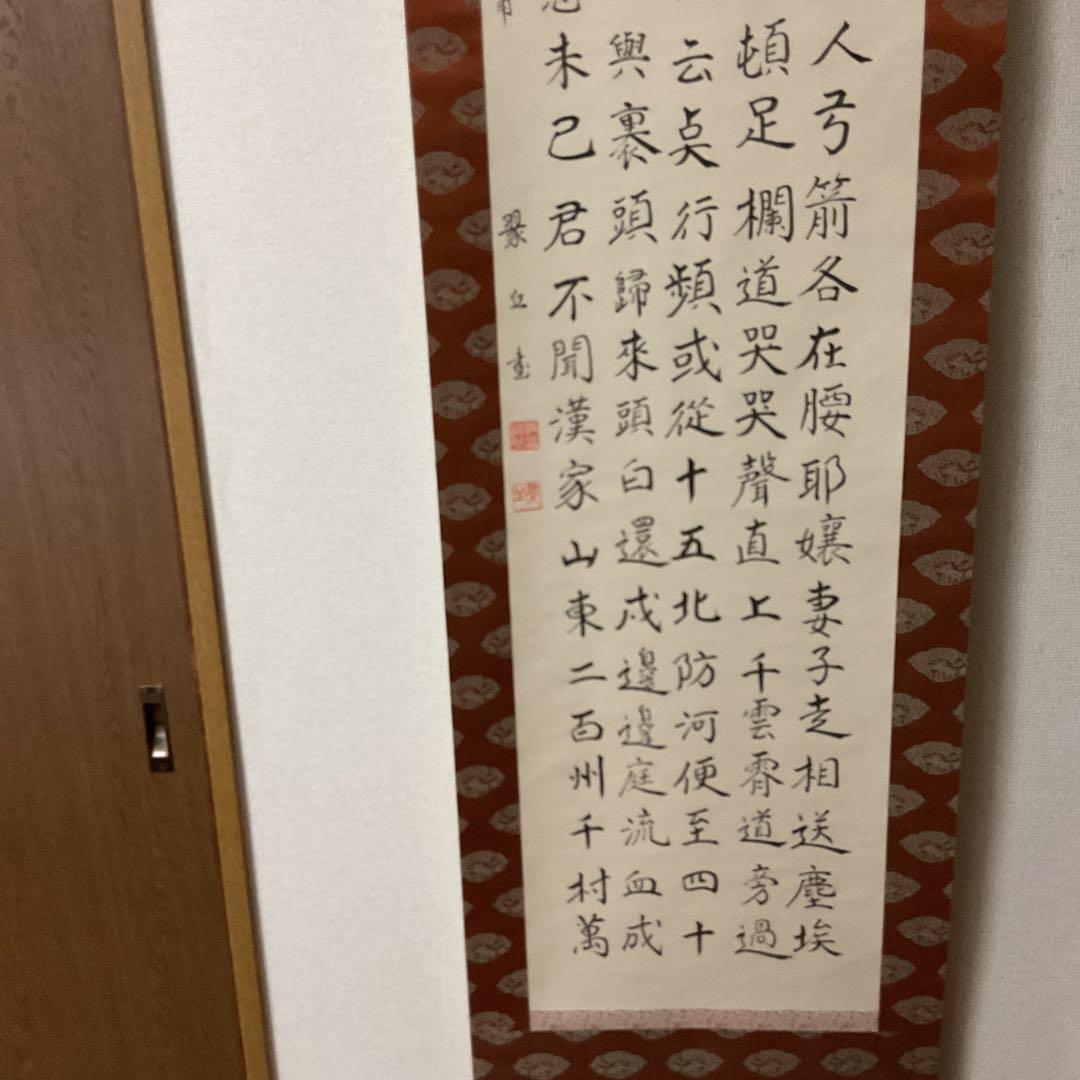 人弓箭各在腰耶孃妻子走相送塵埃
頓足欄道哭哭聲直上千雲霄道旁過
云奌行頻或從十五北防河便至四十
與裹頭歸來頭白還戍邊邊庭流血成
未已君不聞漢家山東二百州千村萬
丘書